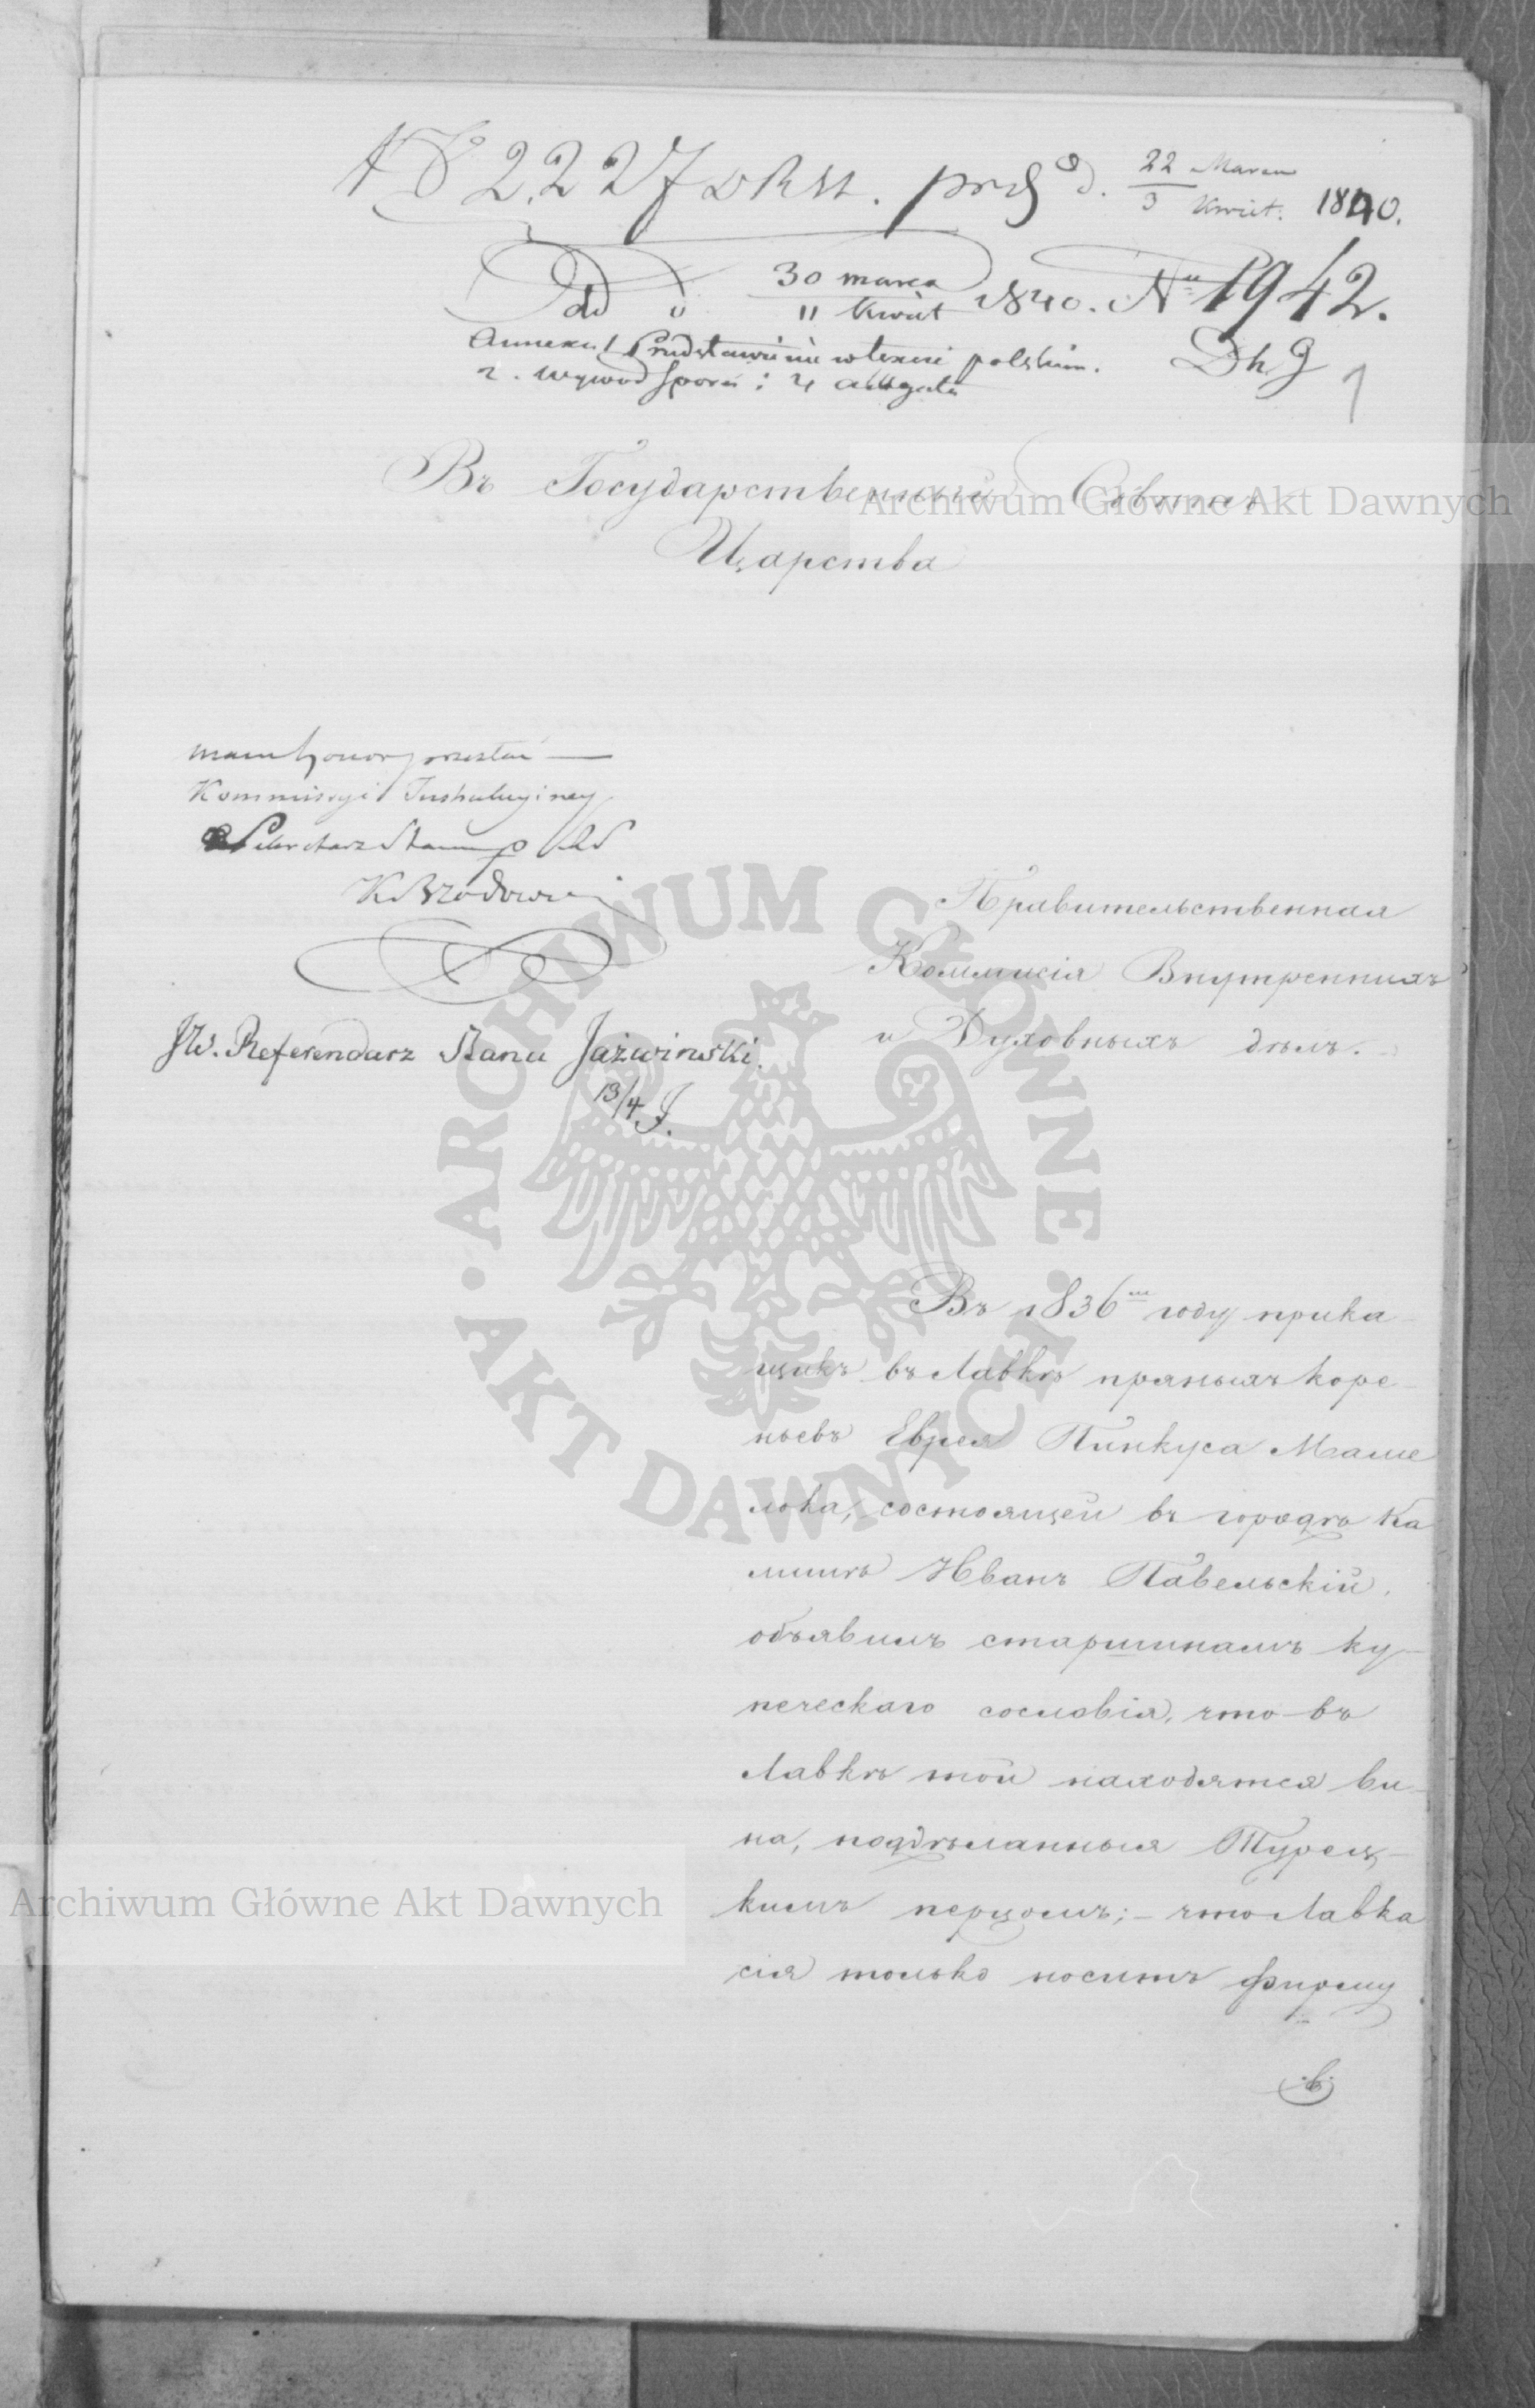 № 2,227 d. 22 Marca / 3 Kwiet. 1840.
Dd 30 marca / 11 Kwiet 1840. Nr 1942.
Annexa 1 Przedstawienie w texcie polskim. Dh. J
2. wywod sporu i 4 allegata 1
Въ Государственный Совѣтъ
Archiwum Główne Akt Dawnych
Царства
mam honor przesłać —
Kommissyi Instrukcyiney
Sekretarz Stanu
K Brzozowski
Правительственная
Коммисія Внутреннихъ
и Духовныхъ дѣлъ.
JW. Referendarz Stanu Jaźwiński.
13/4 J.
ARCHIWUM GŁÓWNE · AKT DAWNYCH ·
Въ 1836мъ году прика-
щикъ въ Лавкѣ пряныхъ коре-
ньевъ Еврея Пинкуса Маше
лока, состоящей въ городѣ Ка
лишѣ Иванъ Павельскій,
объявилъ старшинамъ ку-
печескаго сословія, что въ
Лавкѣ той находятся ви-
на, поддѣланныя Турец-
кимъ перцомъ; – что Лавка
сія только носитъ фирму
Archiwum Główne Akt Dawnych